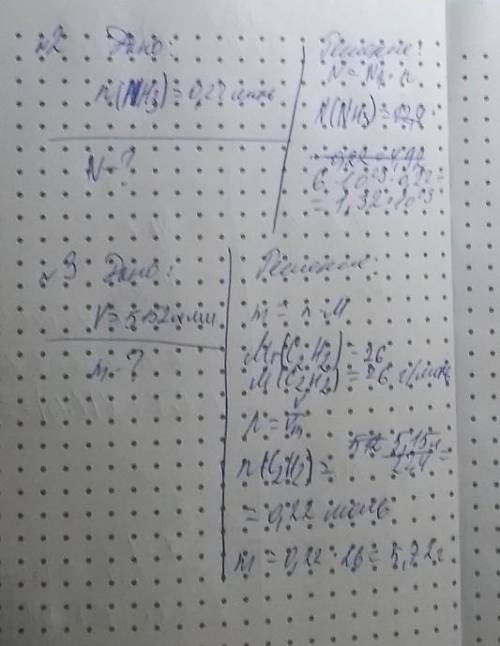 №2 Дано:
n(NH3) = 0,22 моль
N - ?
Решение:
N = NA · n
N(NH3) =
6 · 10²³ · 0,22 =
= 1,32 · 10²³
№3 Дано:
m - ?
Решение:
m = n · M
Mr(C2H2) = 26
M(C2H2) = 26 г/моль
n = V/Vm
n(C2H2) = 5,15л/22,4 =
= 0,22 моль
m = 0,22 · 26 = 5,72г